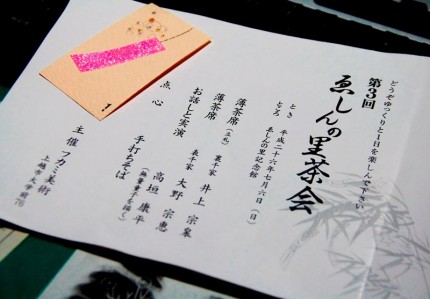 どうぞゆっくりと1日を楽しんで下さい
第3回
ゑしんの里茶会
とき 平成二十六年七月六日(日)
ところ ゑしんの里記念館
薄茶席(立礼) 裏千家 井上 宗泉
薄茶席 表千家 大野 宗恵
お話しと実演 高垣 康平
点心 手打ちそば
主催 フカミ美術